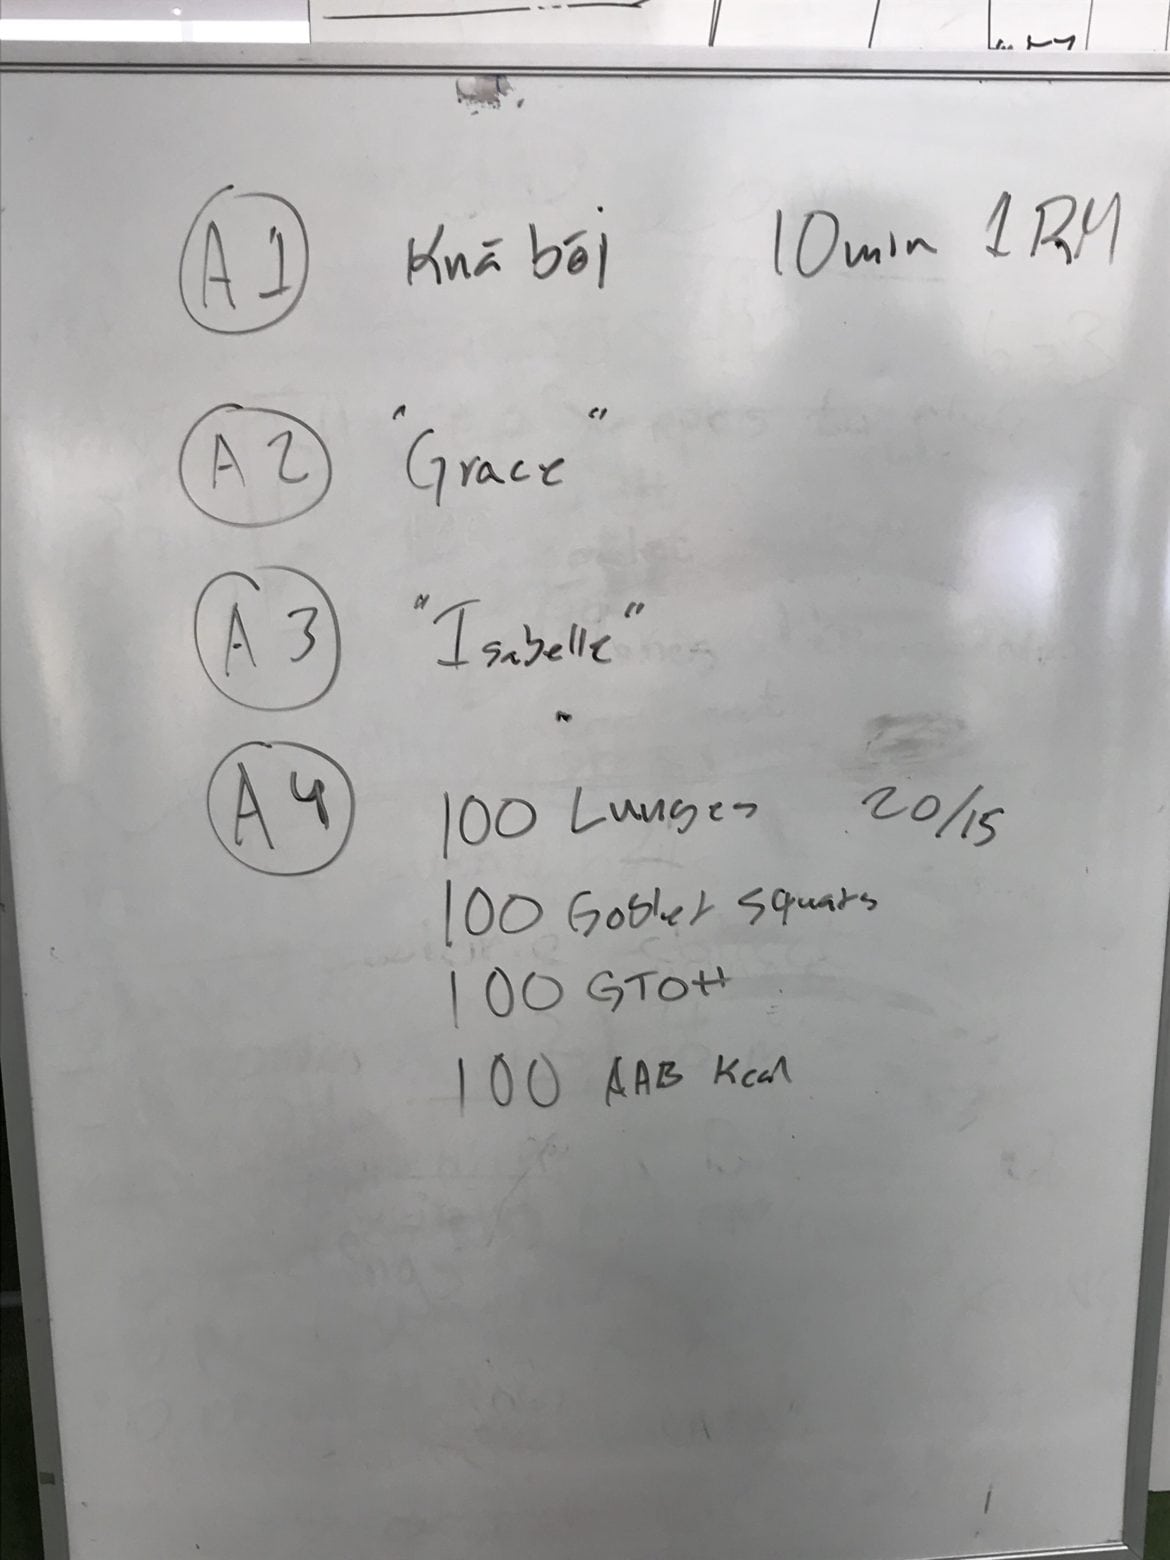 A1 Knä böj 10min 1RM
A2 "Grace"
A3 "Isabelle"
A4 100 Lunges 20/15
100 Goblet squats
100 GTOH
100 AAB Kcal